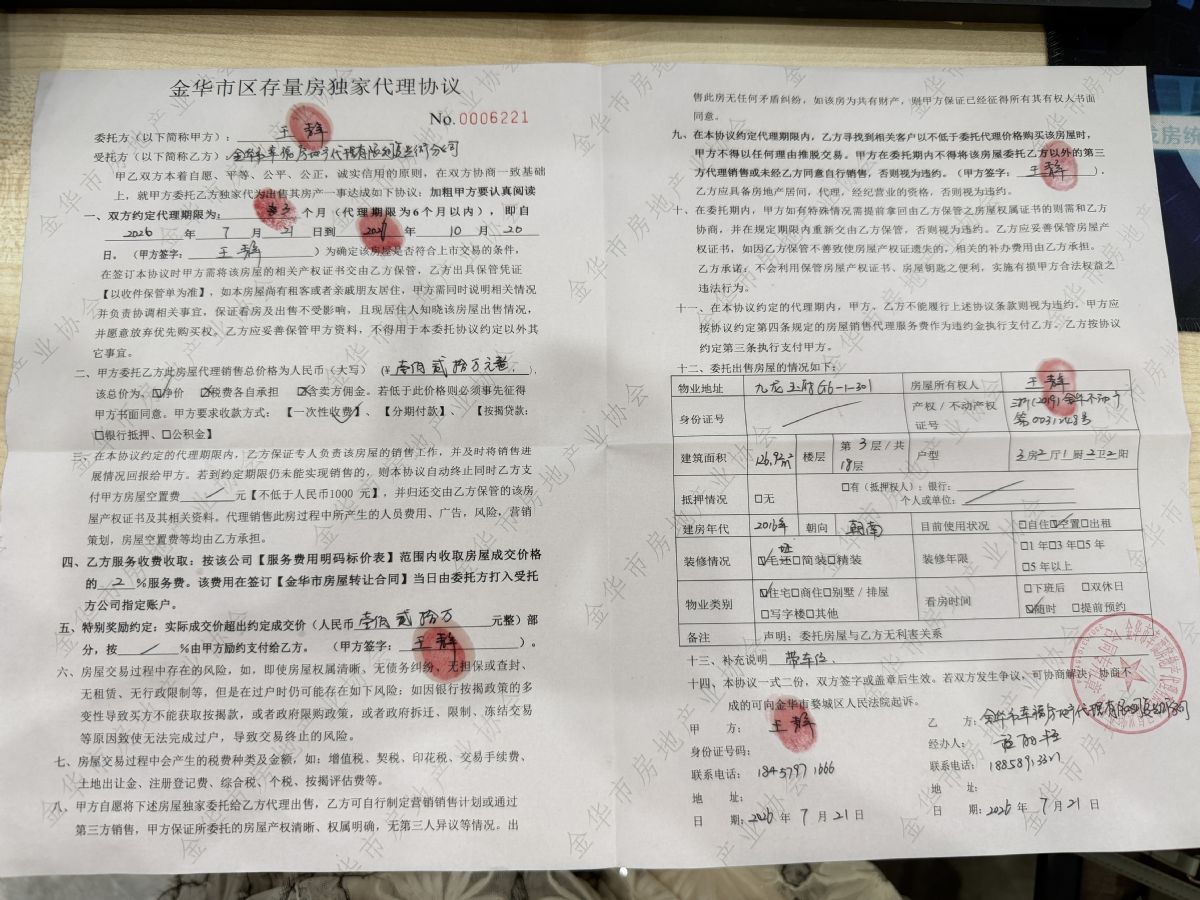 金华市区存量房独家代理协议
No.0006221
委托方（以下简称甲方）： 王静
受托方（以下简称乙方）：金华市幸福房地产代理有限公司 分公司
甲乙双方本着自愿、平等、公平、公正，诚实信用的原则，在双方协商一致基础
上，就甲方委托乙方独家代为出售其房产一事达成如下协议：加粗甲方要认真阅读
一、双方约定代理期限为： 3 个月（代理期限为6个月以内），即自
2026 年 7 月 21 日到 年 10 月 20
日。（甲方签字： 王静 ）为确定该房屋是否符合上市交易的条件，
在签订本协议时甲方需将该房屋的相关产权证书交由乙方保管，乙方出具保管凭证
【以收件保管单为准】，如本房屋尚有租客或者亲戚朋友居住，甲方需同时说明相关情况
并负责协调相关事宜，保证看房及出售不受影响，且现居住人知晓该房屋出售情况，
并愿意放弃优先购买权。乙方应妥善保管甲方资料，不得用于本委托协议约定以外其
它事宜。
二、甲方委托乙方此房屋代理销售总价格为人民币（大写）（¥ 壹佰贰拾万元整 ），
该总价为，☑净价 ☑税费各自承担 ☑含卖方佣金。若低于此价格则必须事先征得
甲方书面同意。甲方要求收款方式：【一次性收费】、【分期付款】、【按揭贷款：
□银行抵押、□公积金】
三、在本协议约定的代理期限内，乙方保证专人负责该房屋的销售工作，并及时将销售进
展情况回报给甲方。若到约定期限仍未能实现销售的，则本协议自动终止同时乙方支
付甲方房屋空置费 / 元【不低于人民币1000 元】，并归还交由乙方保管的该房
屋产权证书及其相关资料。代理销售此房过程中所产生的人员费用、广告，风险，营销
策划，房屋空置费等均由乙方承担。
四、乙方服务收费收取：按该公司【服务费用明码标价表】范围内收取房屋成交价格
的 2 %服务费。该费用在签订【金华市房屋转让合同】当日由委托方打入受托
方公司指定账户。
五、特别奖励约定：实际成交价超出约定成交价（人民币 壹佰贰拾万 元整）部
分，按 / %由甲方励约支付给乙方。 （甲方签字： 王静 ）。
六、房屋交易过程中存在的风险，如，即使房屋权属清晰、无债务纠纷、无担保或查封、
无租赁、无行政限制等，但是在过户时仍可能存在如下风险：如因银行按揭政策的多
变性导致买方不能获取按揭款，或者政府限购政策，或者政府拆迁、限制、冻结交易
等原因致使无法完成过户，导致交易终止的风险。
七、房屋交易过程中会产生的税费种类及金额，如：增值税、契税、印花税、交易手续费、
土地出让金、注册登记费、综合税、个税、按揭评估费等。
八、甲方自愿将下述房屋独家委托给乙方代理出售，乙方可自行制定营销销售计划或通过
第三方销售，甲方保证所委托的房屋产权清晰、权属明确，无第三人异议等情况。出
售此房无任何矛盾纠纷，如该房为共有财产，则甲方保证已经征得所有其有权人书面
同意。
九、在本协议约定代理期限内，乙方寻找到相关客户以不低于委托代理价格购买该房屋时，
甲方不得以任何理由推脱交易。甲方在委托期内不得将该房屋委托乙方以外的第三
方代理销售或未经乙方同意自行销售，否则视为违约。（甲方签字： 王静 ），
乙方应具备房地产居间，代理，经纪营业的资格，否则视为违约。
十、在委托期内，甲方如有特殊情况需提前拿回由乙方保管之房屋权属证书的则需和乙方
协商，并在规定期限内重新交由乙方保管，否则视为违约。乙方应妥善保管房屋产
权证书，如因乙方保管不善致使房屋产权证遗失的，相关的补办费用由乙方承担。
乙方承诺：不会利用保管房屋产权证书、房屋钥匙之便利，实施有损甲方合法权益之
违法行为。
十一、在本协议约定的代理期限内，甲方、乙方不能履行上述协议条款则视为违约，甲方应
按协议约定第四条规定的房屋销售代理服务费作为违约金执行支付乙方。乙方按协议
约定第三条执行支付甲方。
十二、委托出售房屋的情况如下：
物业地址 九龙玉府G6-1-301 房屋所有权人 王静
身份证号 / 产权/不动产权证号 浙(2019)金华不动产第0031248号
建筑面积 126.92m² 楼层 第 3 层/共 18层 户型 3房2厅1厨2卫2阳
抵押情况 □无 □有（抵押权人）：银行： 个人或单位：
建房年代 2016年 朝向 朝南 目前使用状况 □自住☑空置□出租
装修情况 ☑毛坯□简装□精装 装修年限 □1年□3年□5年 □5年以上
物业类别 ☑住宅□商住□别墅/排屋 □写字楼□其他 看房时间 □下班后 □双休日 ☑随时 □提前预约
备注 声明：委托房屋与乙方无利害关系
十三、补充说明 带车位.
十四、本协议一式二份，双方签字或盖章后生效。若双方发生争议，可协商解决，协商不
成的可向金华市婺城区人民法院起诉。
甲 方： 王静
身份证号码：
联系电话： 18457971666
地 址：
日 期：2026 年 7 月 21 日
乙 方：金华市幸福房地产代理有限公司 分公司
经办人：
联系电话：18858913321
地 址：
日 期：2026 年 7 月 21 日
金华市房地产业协会